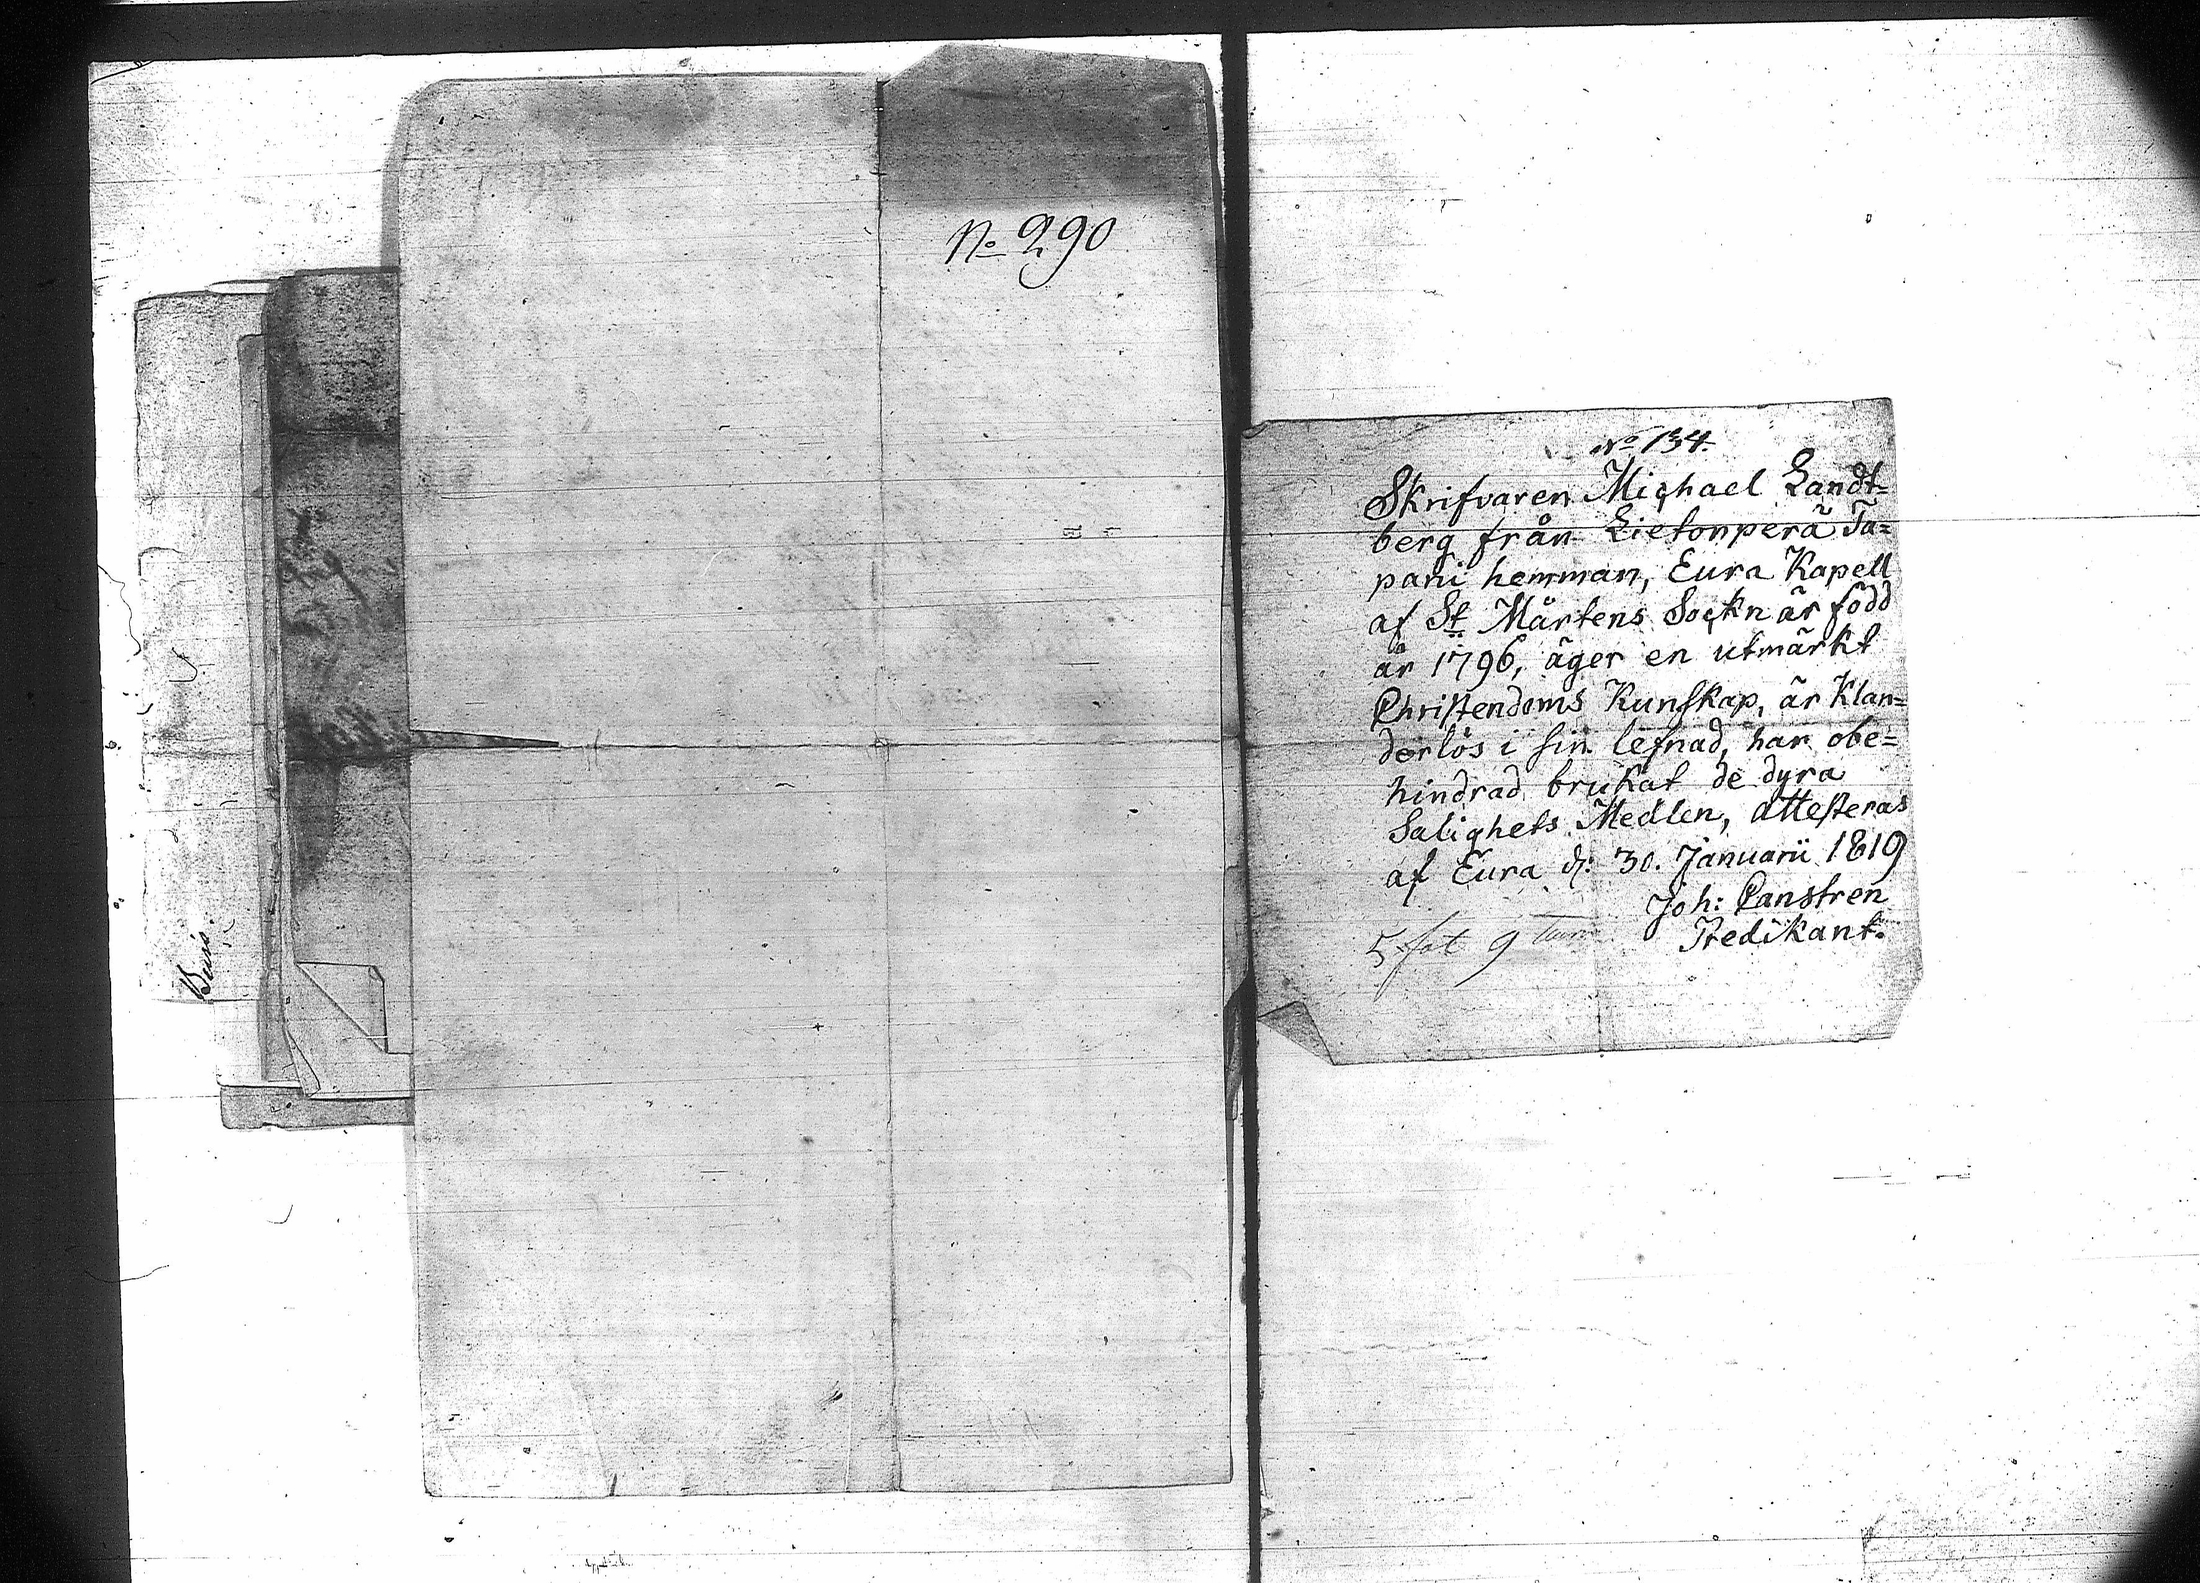 No 290
No 134.
Skrifvaren Michael Landt=
berg från Lietonperä Ta=
pani hemman, Eura Kapell
af St Mårtens Sockn är född
år 1796, äger en utmärkt
Christendoms Kunskap, är Klan=
derlös i sin lefnad, har obe=
hindrad brukat de dyra
Salighets Medlen, attesteras
af Eura d: 30. Januarii 1819
Joh: Canstren
Predikant.
5 fot 9 tum